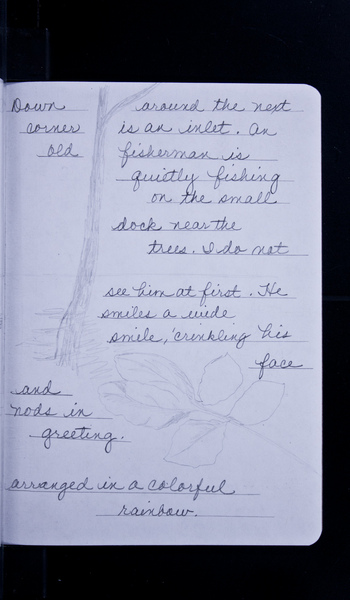 Down around the next
corner is an inlet. An
old fisherman is
quietly fishing
on the small
dock near the
trees. I do not
see him at first. He
smiles a wide
smile, crinkling his
face
and
nods in
greeting.
arranged in a colorful
rainbow.